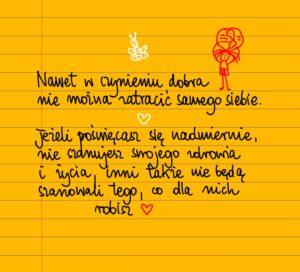 Nawet w czynieniu dobra
nie można zatracić samego siebie.
Jeżeli poświęcasz się nadmiernie,
nie szanujesz swojego zdrowia
i życia, inni także nie będą
szanowali tego, co dla nich
robisz